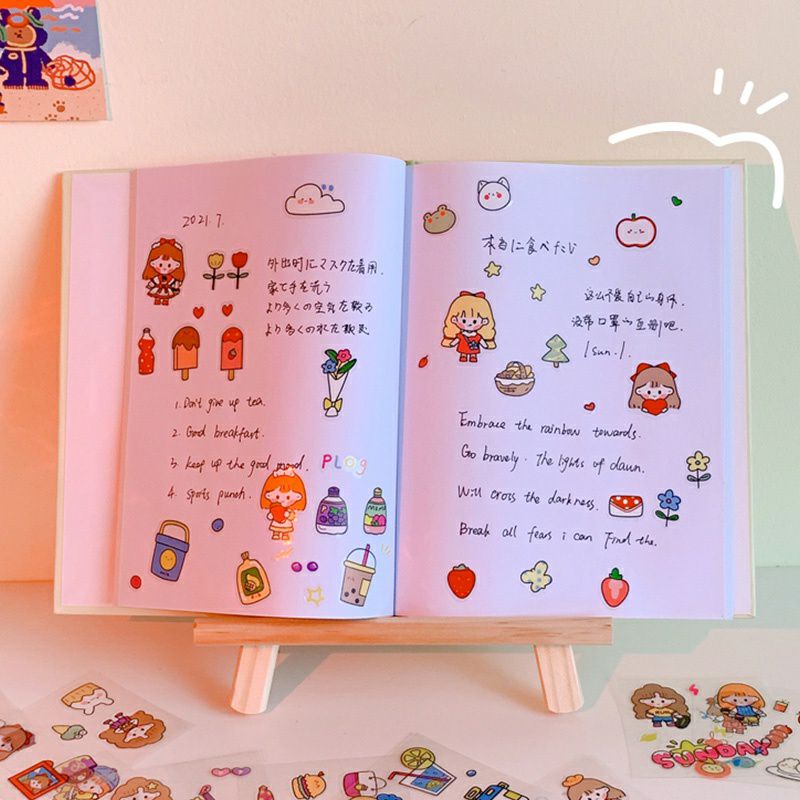 2021.7.
外出时にマスクた着用.
家て手を洗う
より多くの空気を歓る
より多くのれた歓む
1. Don't give up tea.
2. Good breakfast.
3. keep up the good mood.
PLOg
4. sports punch.
本当に食べたい
这么不爱自己的身体.
没带口罩的
吧.
1sun.1.
Embrace the rainbow towards.
Go bravely. The lights of dawn.
Will cross the darkness.
Break all fears i can Find the.
SUNDAY